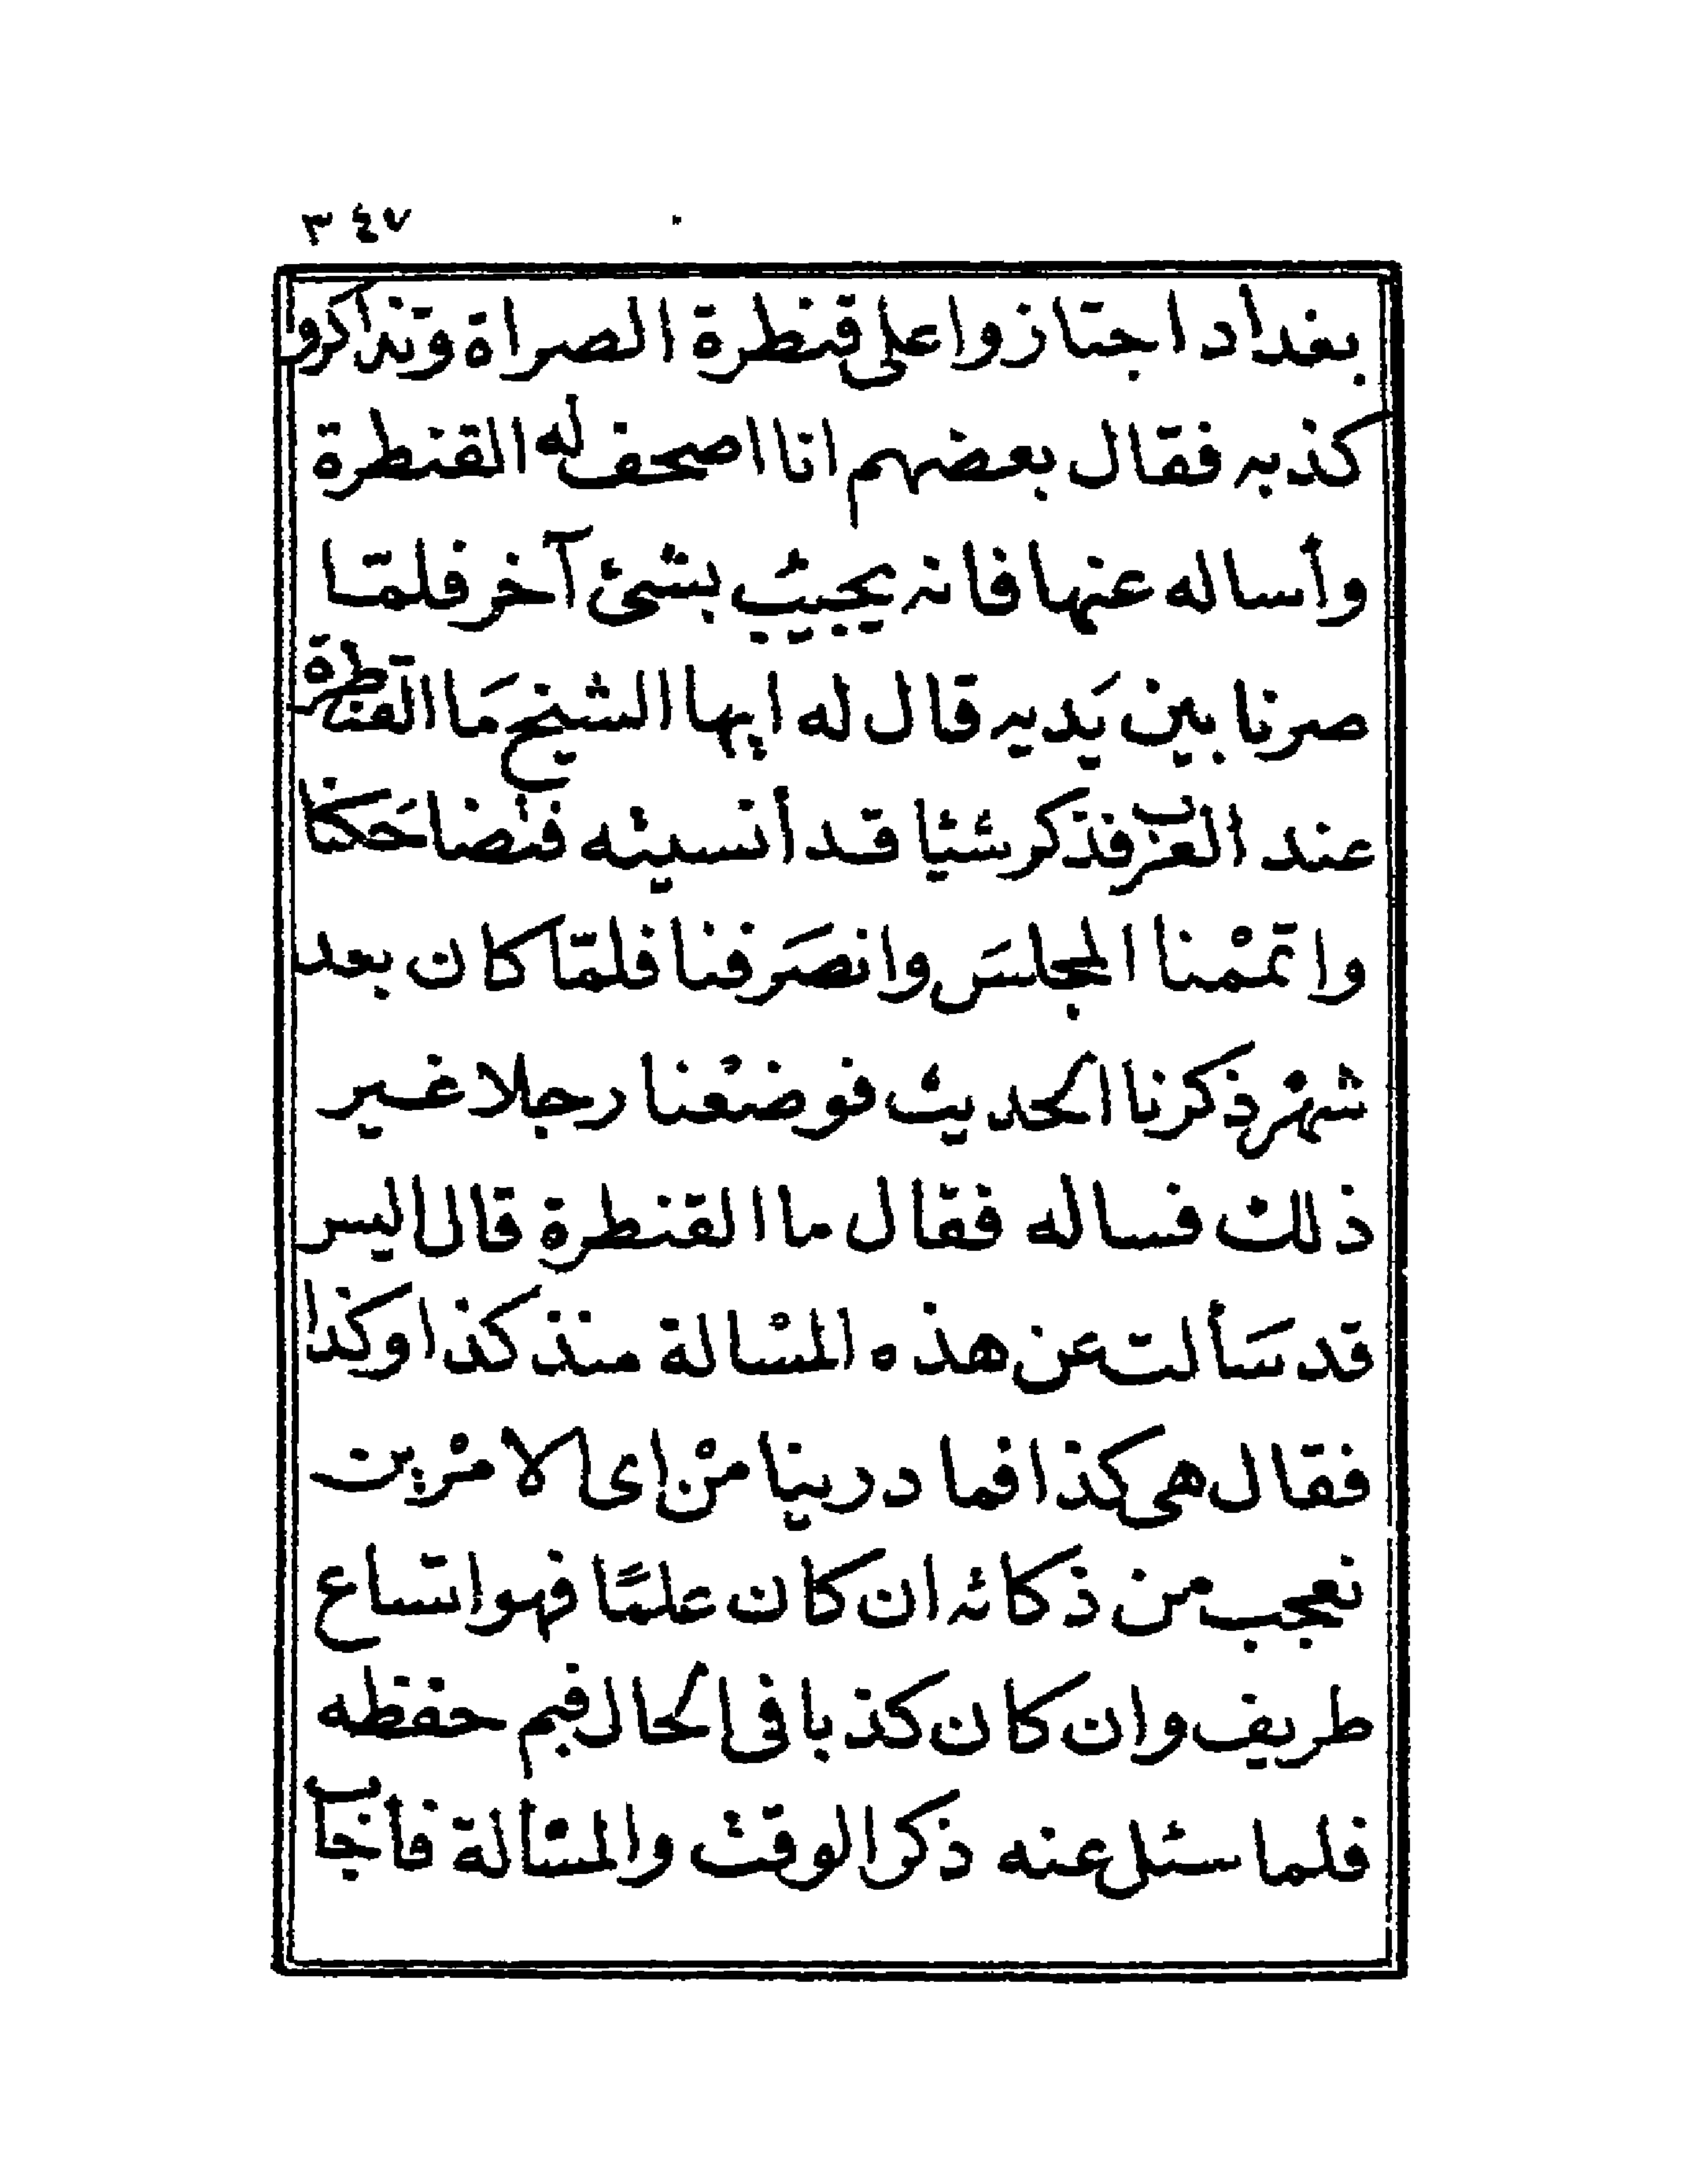 ٣٤٧
بغداد اجتازوا على قنطرة الصراة وتذاكروا
كذبه فقال بعضهم انا اصحف له القنطرة
وأساله عنها فانه يجيب بشئ آخر فلمّا
صرنا بين يَديه قال له ايها الشيخ مَا القنطرة
عند العرب فذكر شيئا قد أنسيته فتضاحَكنا
واتممْنا المجلسَ وانصَرفنا فلمّا كان بعد
شهر ذكرنا الحديث فوضعْنا رجلا غير
ذلك فساله فقال ما القنطرة قال اليس
قد سَألت عن هذه المسْالة منذ كذا وكذا
فقال هى كذا فما درينا منْ اى الامْرين
نعجب من ذكائه ان كان علمًا فهو اتساع
طريف وان كان كذبا فى الحال فبم حفظه
فلما سئل عنه ذكر الوقت والمسْألة فأجاب